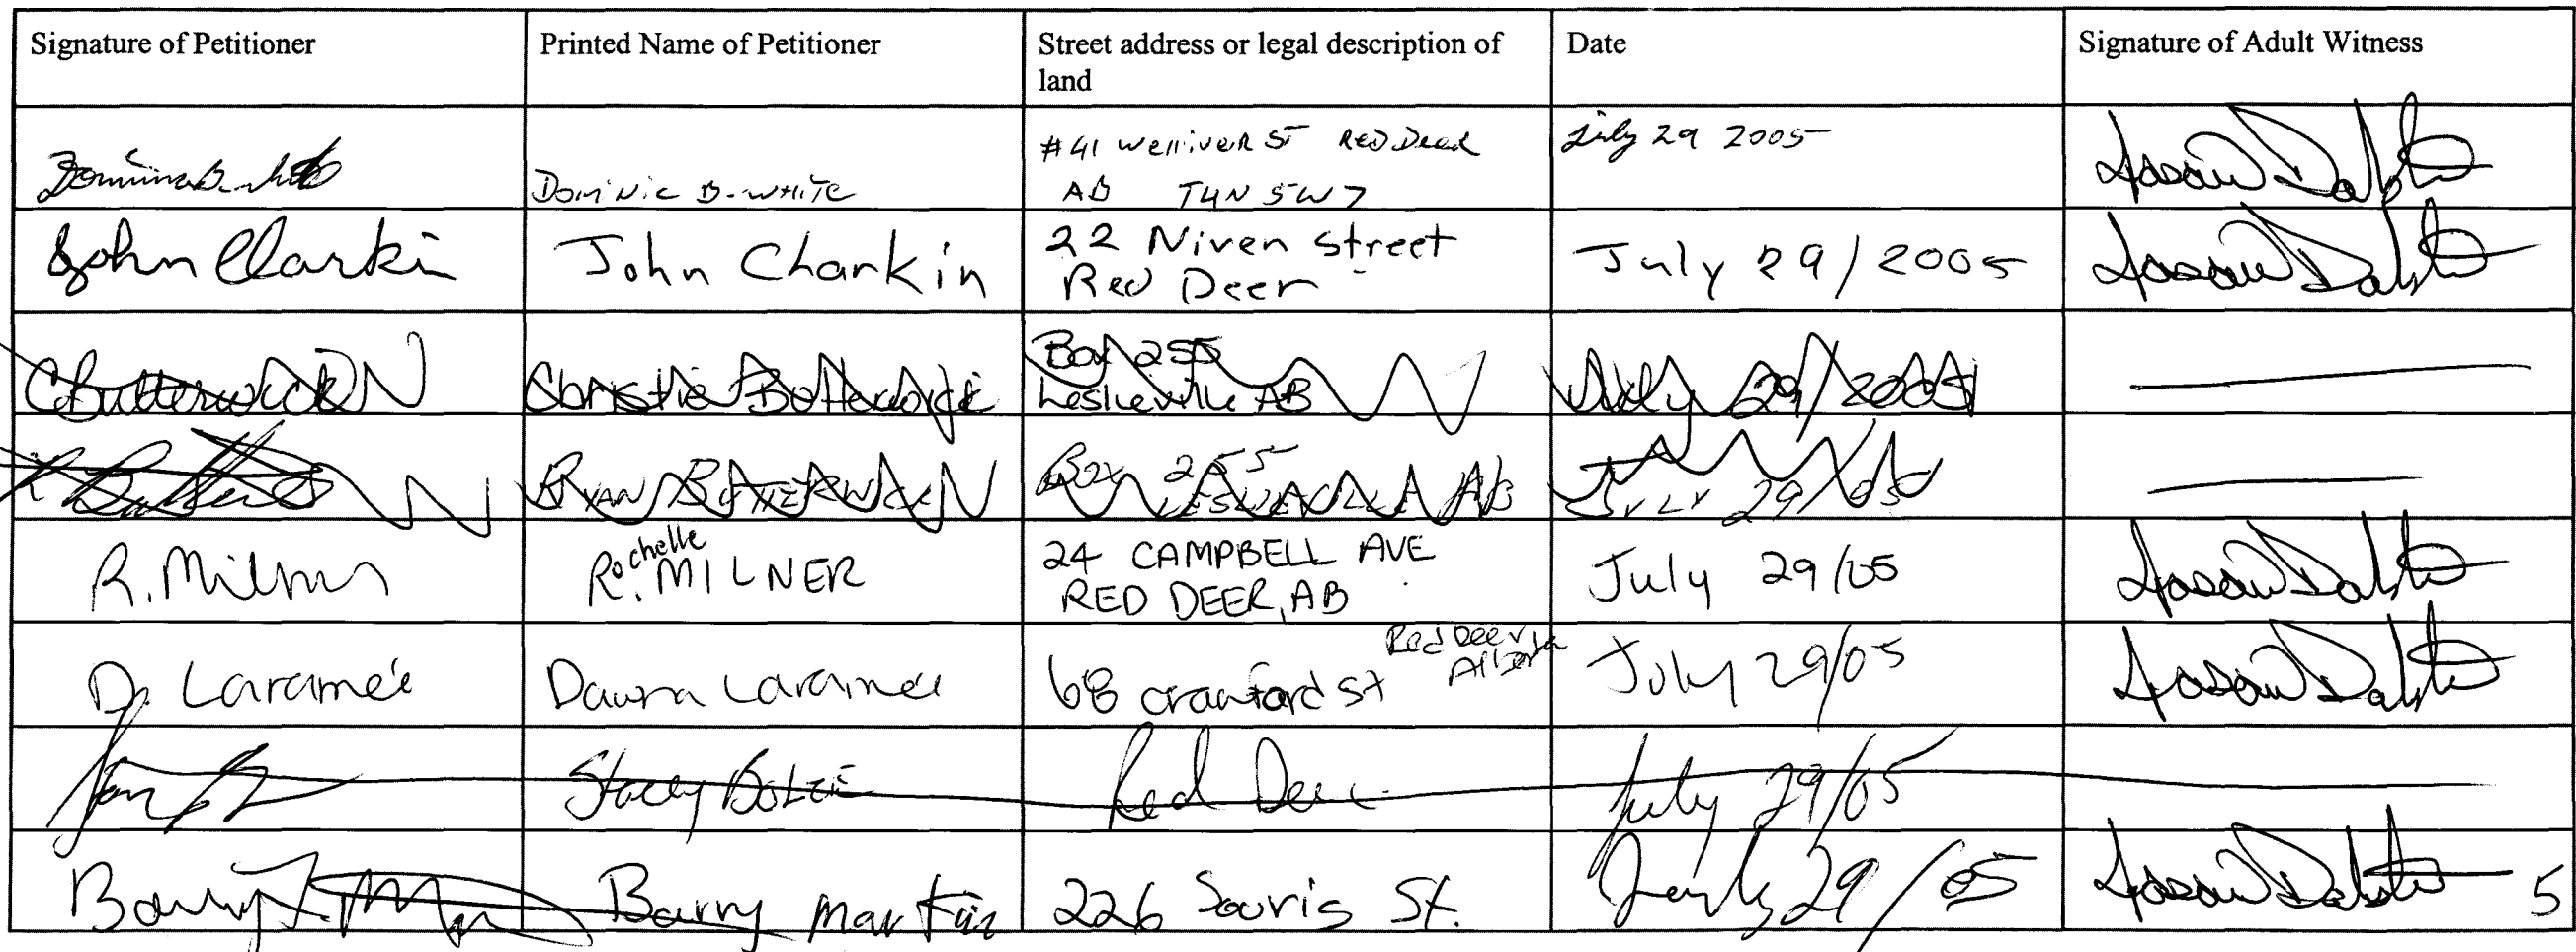 Signature of Petitioner
Printed Name of Petitioner
Street address or legal description of
land
Date
Signature of Adult Witness
Dominic B-WHITE
#41 Welliver ST Red Deer
AB T4N 5W7
July 29 2005
John Clarkin
John Charkin
22 Niven Street
Red Deer
July 29/2005
CButterwick
Christie Butterwick
Box 255
Leslieville AB
July 29/2005
RYAN BUTTERWICK
Box 255
LESLIEVILLE AB
JULY 29/05
R. Milner
Rochelle MILNER
24 CAMPBELL AVE
RED DEER, AB
July 29/05
D. Laramée
Dawna Laramee
68 Crawford St Red Deer
Alberta
July 29/05
Stacey
Red Deer
July 29/05
Barry
Barry Martin
226 Souris St.
July 29/05
5